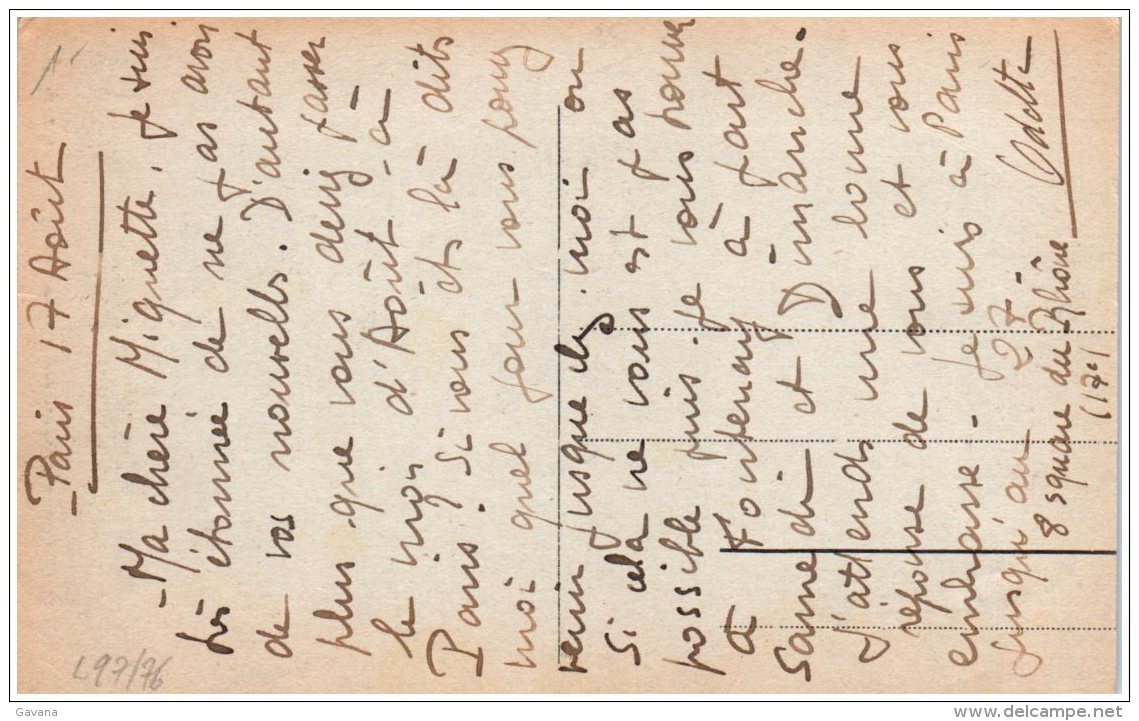 Paris 17 Août
Ma chère Miquette, je suis
très étonnée de ne pas avoir
de vos nouvelles. D'autant
plus que vous deviez passer
le mois d'Août à
Paris. Si vous êtes là dites
moi quel jour vous pouvez
venir jusque chez moi ou
Si cela ne vous est pas
possible puis-je vous trouver
à Fontenay à part
Samedi et Dimanche.
J'attends une bonne
réponse de vous et vous
embrasse. Je suis à Paris
jusqu'au 27.
Odette
8 square du Rhône
(17e)
L97/76
Gavana
delcampe.net